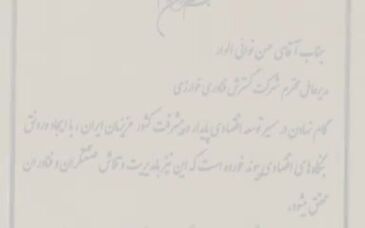 جناب آقای حسن نوائی الوار
مدیرعامل محترم شرکت گسترش فناوری خوارزمی
گام نهادن در مسیر توسعه اقتصادی پایدار و پیشرفت کشور عزیزمان ایران، با ایجاد و رونق
بنگاه‌های اقتصادی پیوند خورده است که این نیز با مدیریت و تلاش صنعتگران و فناوران
محقق میشود.